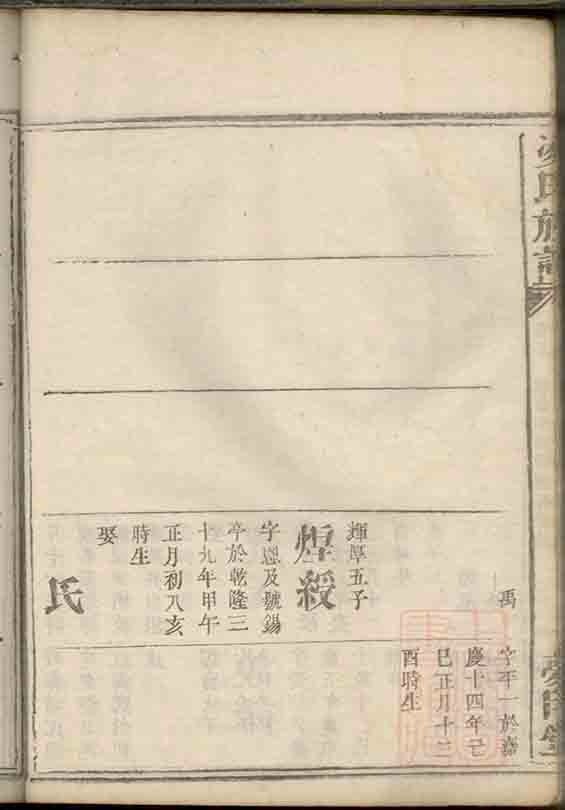 氏族譜
禹
字平一於嘉
慶十四年己
巳正月十二
酉時生
輝厚五子
煌綬
字恩及號錫
亭於乾隆三
十九年甲午
正月初八亥
時生
娶
氏